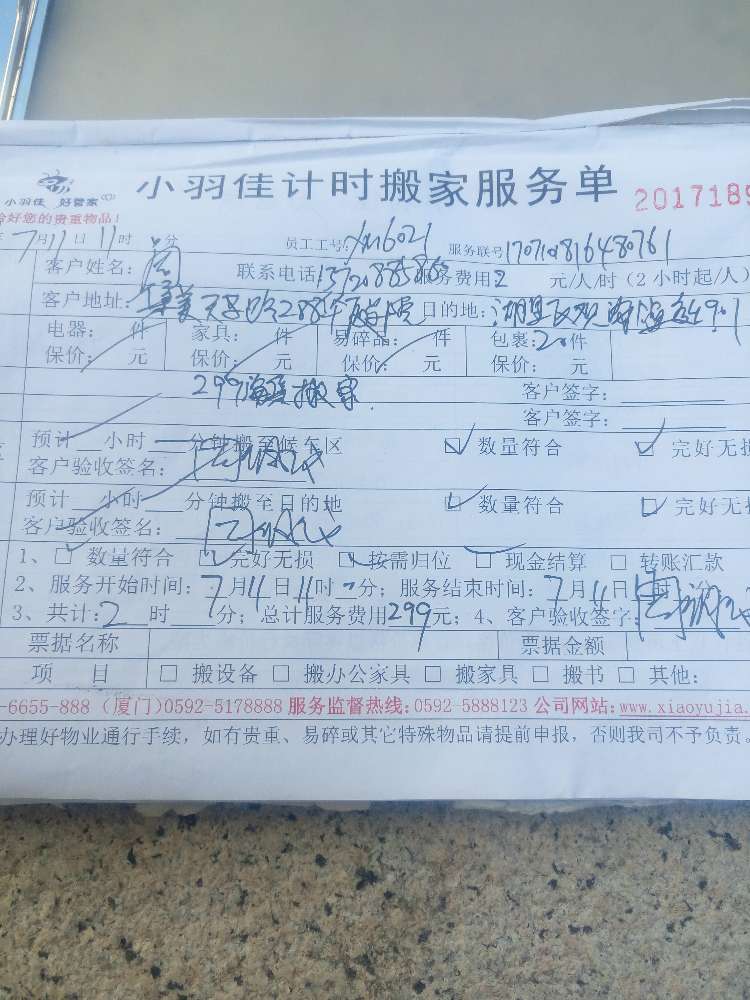 小羽佳 好管家
小羽佳计时搬家服务单
2017189
好您的贵重物品!
7月11日11时 分 员工工号: 服务联号
客户姓名:周 联系电话 服务费用2 元/人/时(2小时起/人)
客户地址: 目的地:
电器: 件 家具: 件 易碎品: 件 包裹:20件
保价: 元 保价: 元 保价: 元 保价: 元
299 搬家 客户签字:
客户签字:
预计 小时 分钟搬至候车区 数量符合 完好无损
客户验收签名:
预计 小时 分钟搬至目的地 数量符合 完好无
客户验收签名:
1、 数量符合 完好无损 按需归位 现金结算 转账汇款
2、服务开始时间:7月11日11时 分; 服务结束时间:7月11日 分
3、共计:2时 分; 总计服务费用299元; 4、客户验收签字:
票据名称 票据金额
项 目 搬设备 搬办公家具 搬家具 搬书 其他:
-6655-888(厦门)0592-5178888 服务监督热线:0592-5888123 公司网站:www.xiaoyujia.
办理好物业通行手续,如有贵重、易碎或其它特殊物品请提前申报,否则我司不予负责。